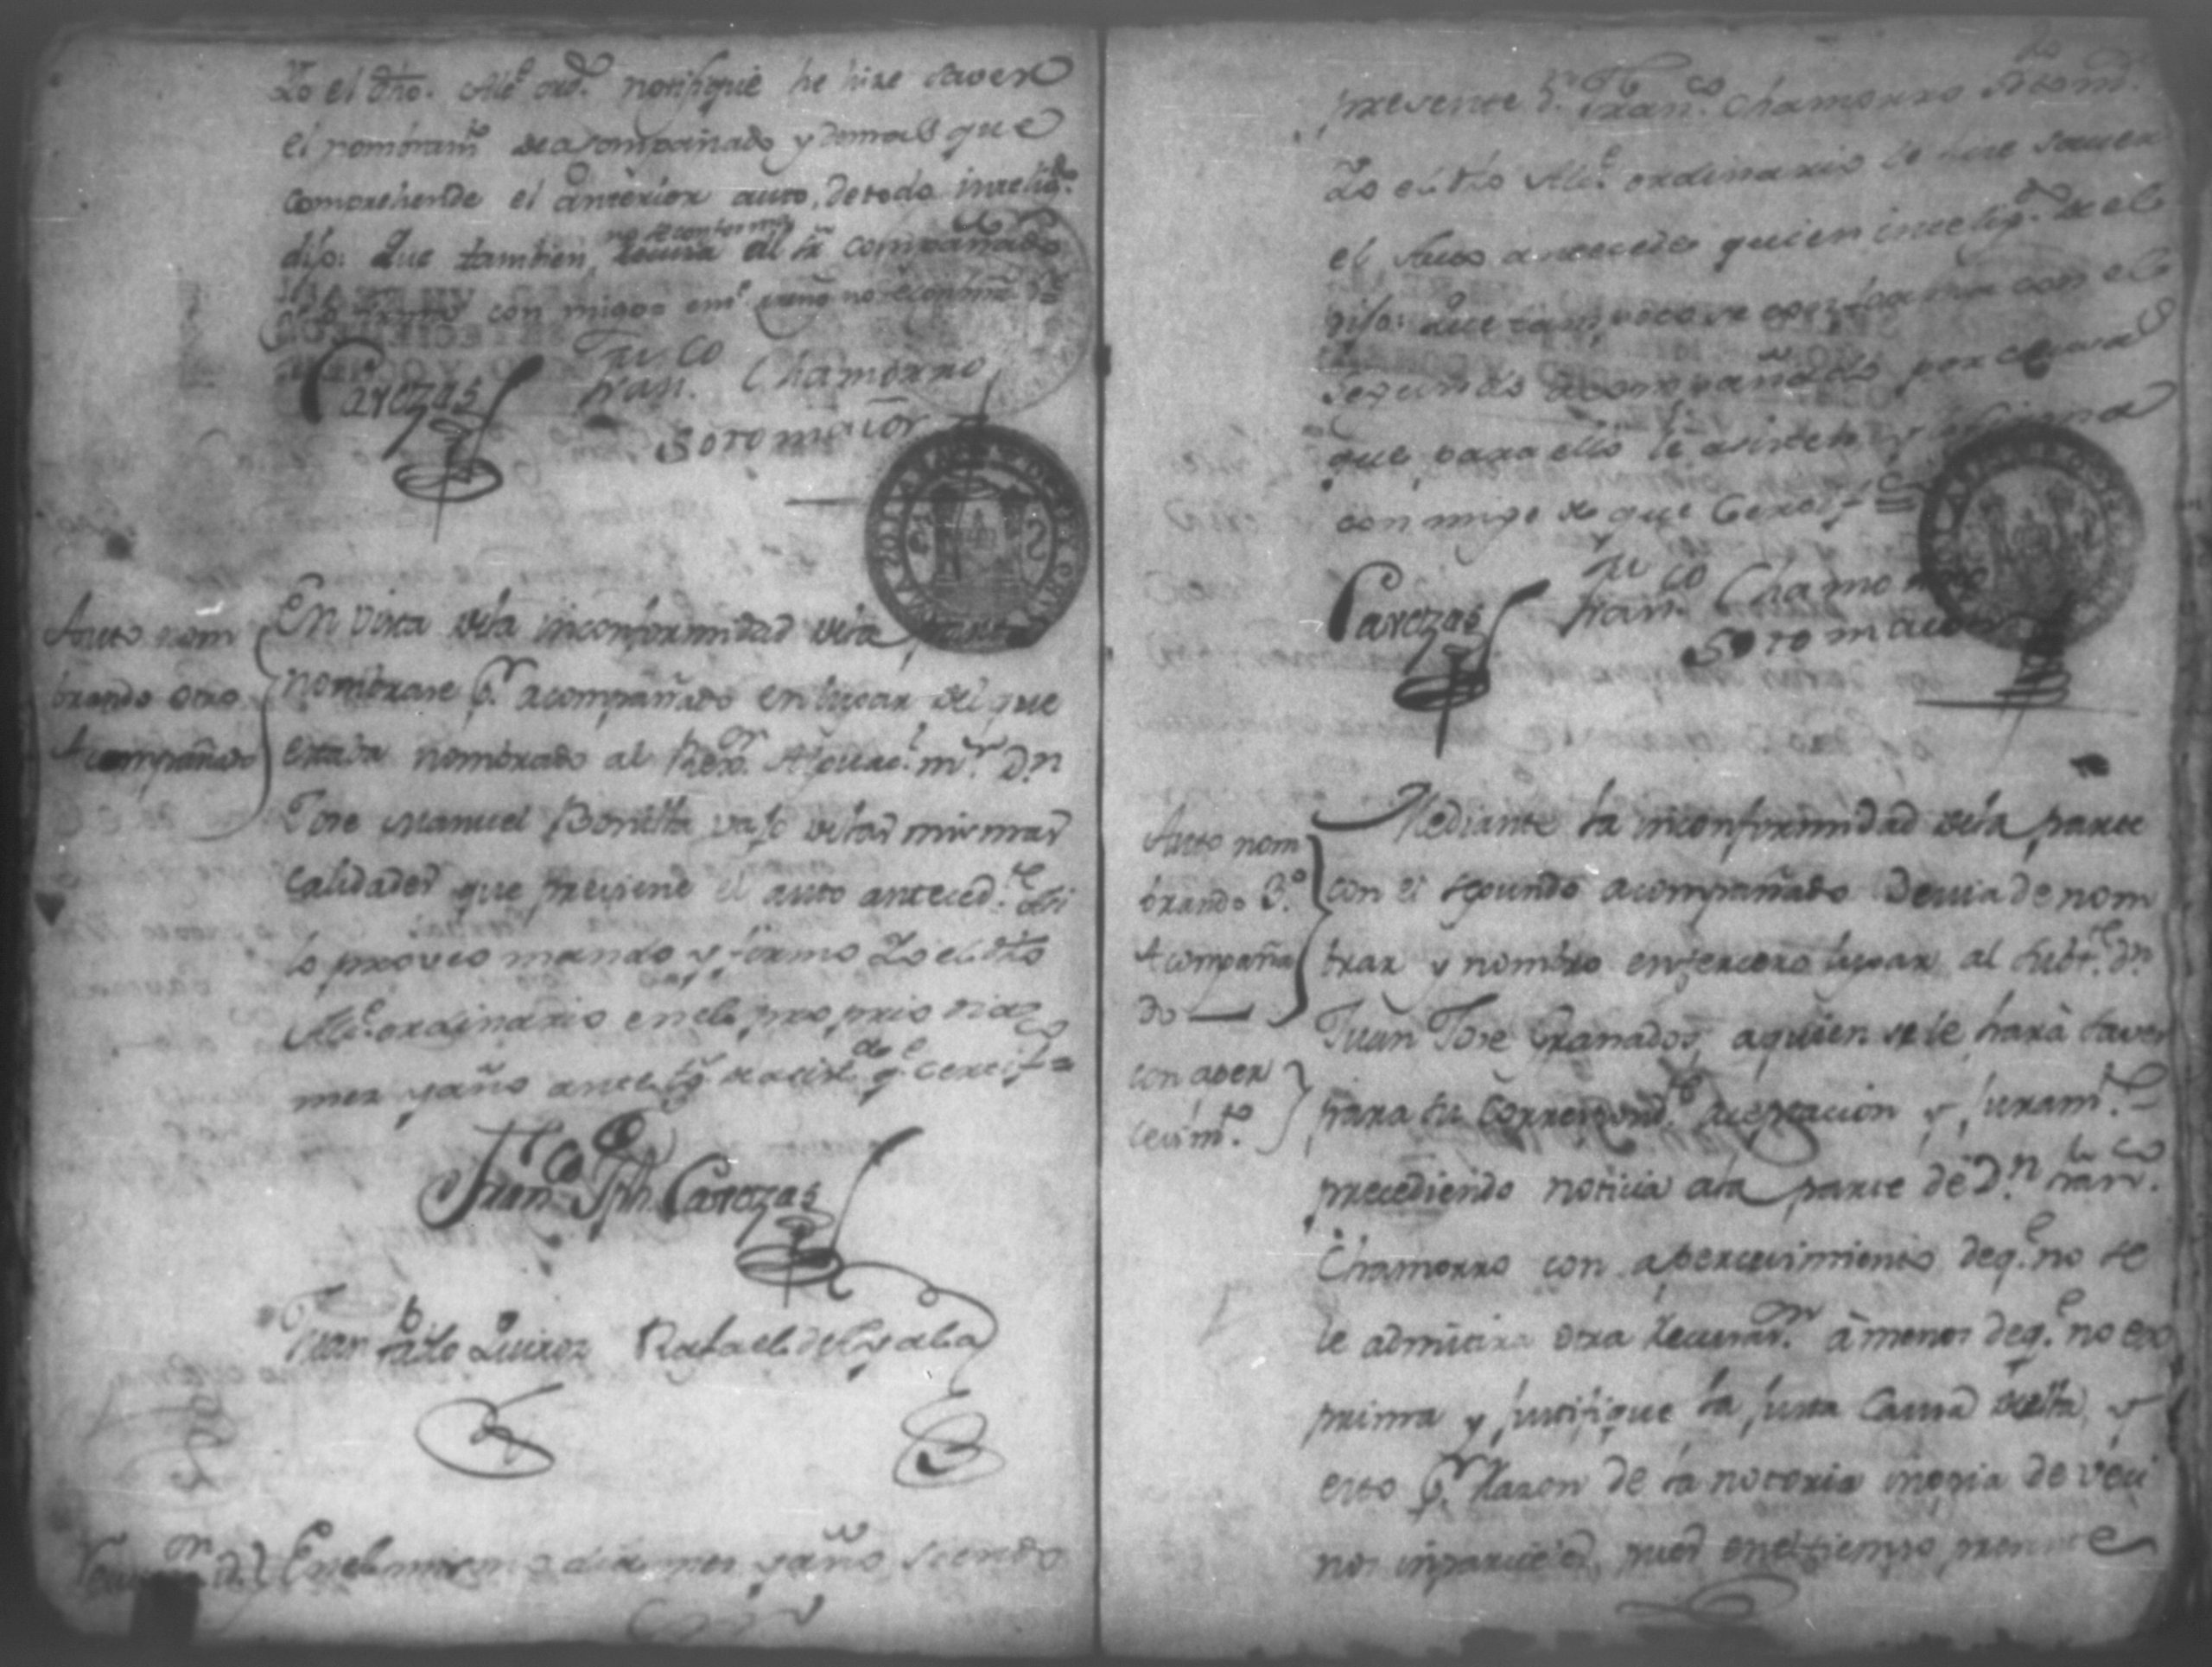 Yo el dho. Alc.e ord.o notifiqué he hize saver
el nombram.to de acompañado y demas que
comprehende el anterior auto, de todo intelig.do
dijo: Que tambien
no se conforma
con migo
Carozas Fran.co Chamorro
Sotomaior
Auto nom
brando otro
Acompañado
En vista de la inconformidad de la parte
nombrase p.r acompañado en lugar del que
estava nombrado al Rex.or Alguac.l m.r D.n
Jose Manuel Bonilla vajo de las mismas
calidades que previene el auto anteced.te Asi
lo proveo mando y firmo Yo el dho
Alc.e ordinario en el proprio dia
mes y año ante tg.s de asist.a q.e certif.o
Fran.co Jph. Carozas
Juan Pablo Quiros Rafael de
En el mismo dia mes y año siendo
presente D.n Fran.co Chamorro Sotom.or
Yo el dho Alc.e ordinario le hize saver
el Auto antecede quien intelig.do de el
dijo: Que tampoco se conforma con el
segundo acompañado por causas
que para ello le asisten y firma
con migo de que Certif.o
Carozas Fran.co Chamorro
Sotomaior
Auto nom
brando 3.o
Acompaña
do
con aper
cevim.to
Mediante la inconformidad de la parte
con el segundo acompañado Devia de nom
brar y nombro en tercero lugar al Subt.te D.n
Juan Jose Granados, a quien se le hará saver
para su correspond.te aceptacion y juram.to
precediendo noticia a la parte de D.n Fran.co
Chamorro con apercevimiento de q.e no se
le admitira otra Recusas.on á menos de q.e no ex
prima y justifique la justa Causa de ella y
esto p.r Razon de la notoria inopia de veci
nos inparciales, pues en el tiempo presente